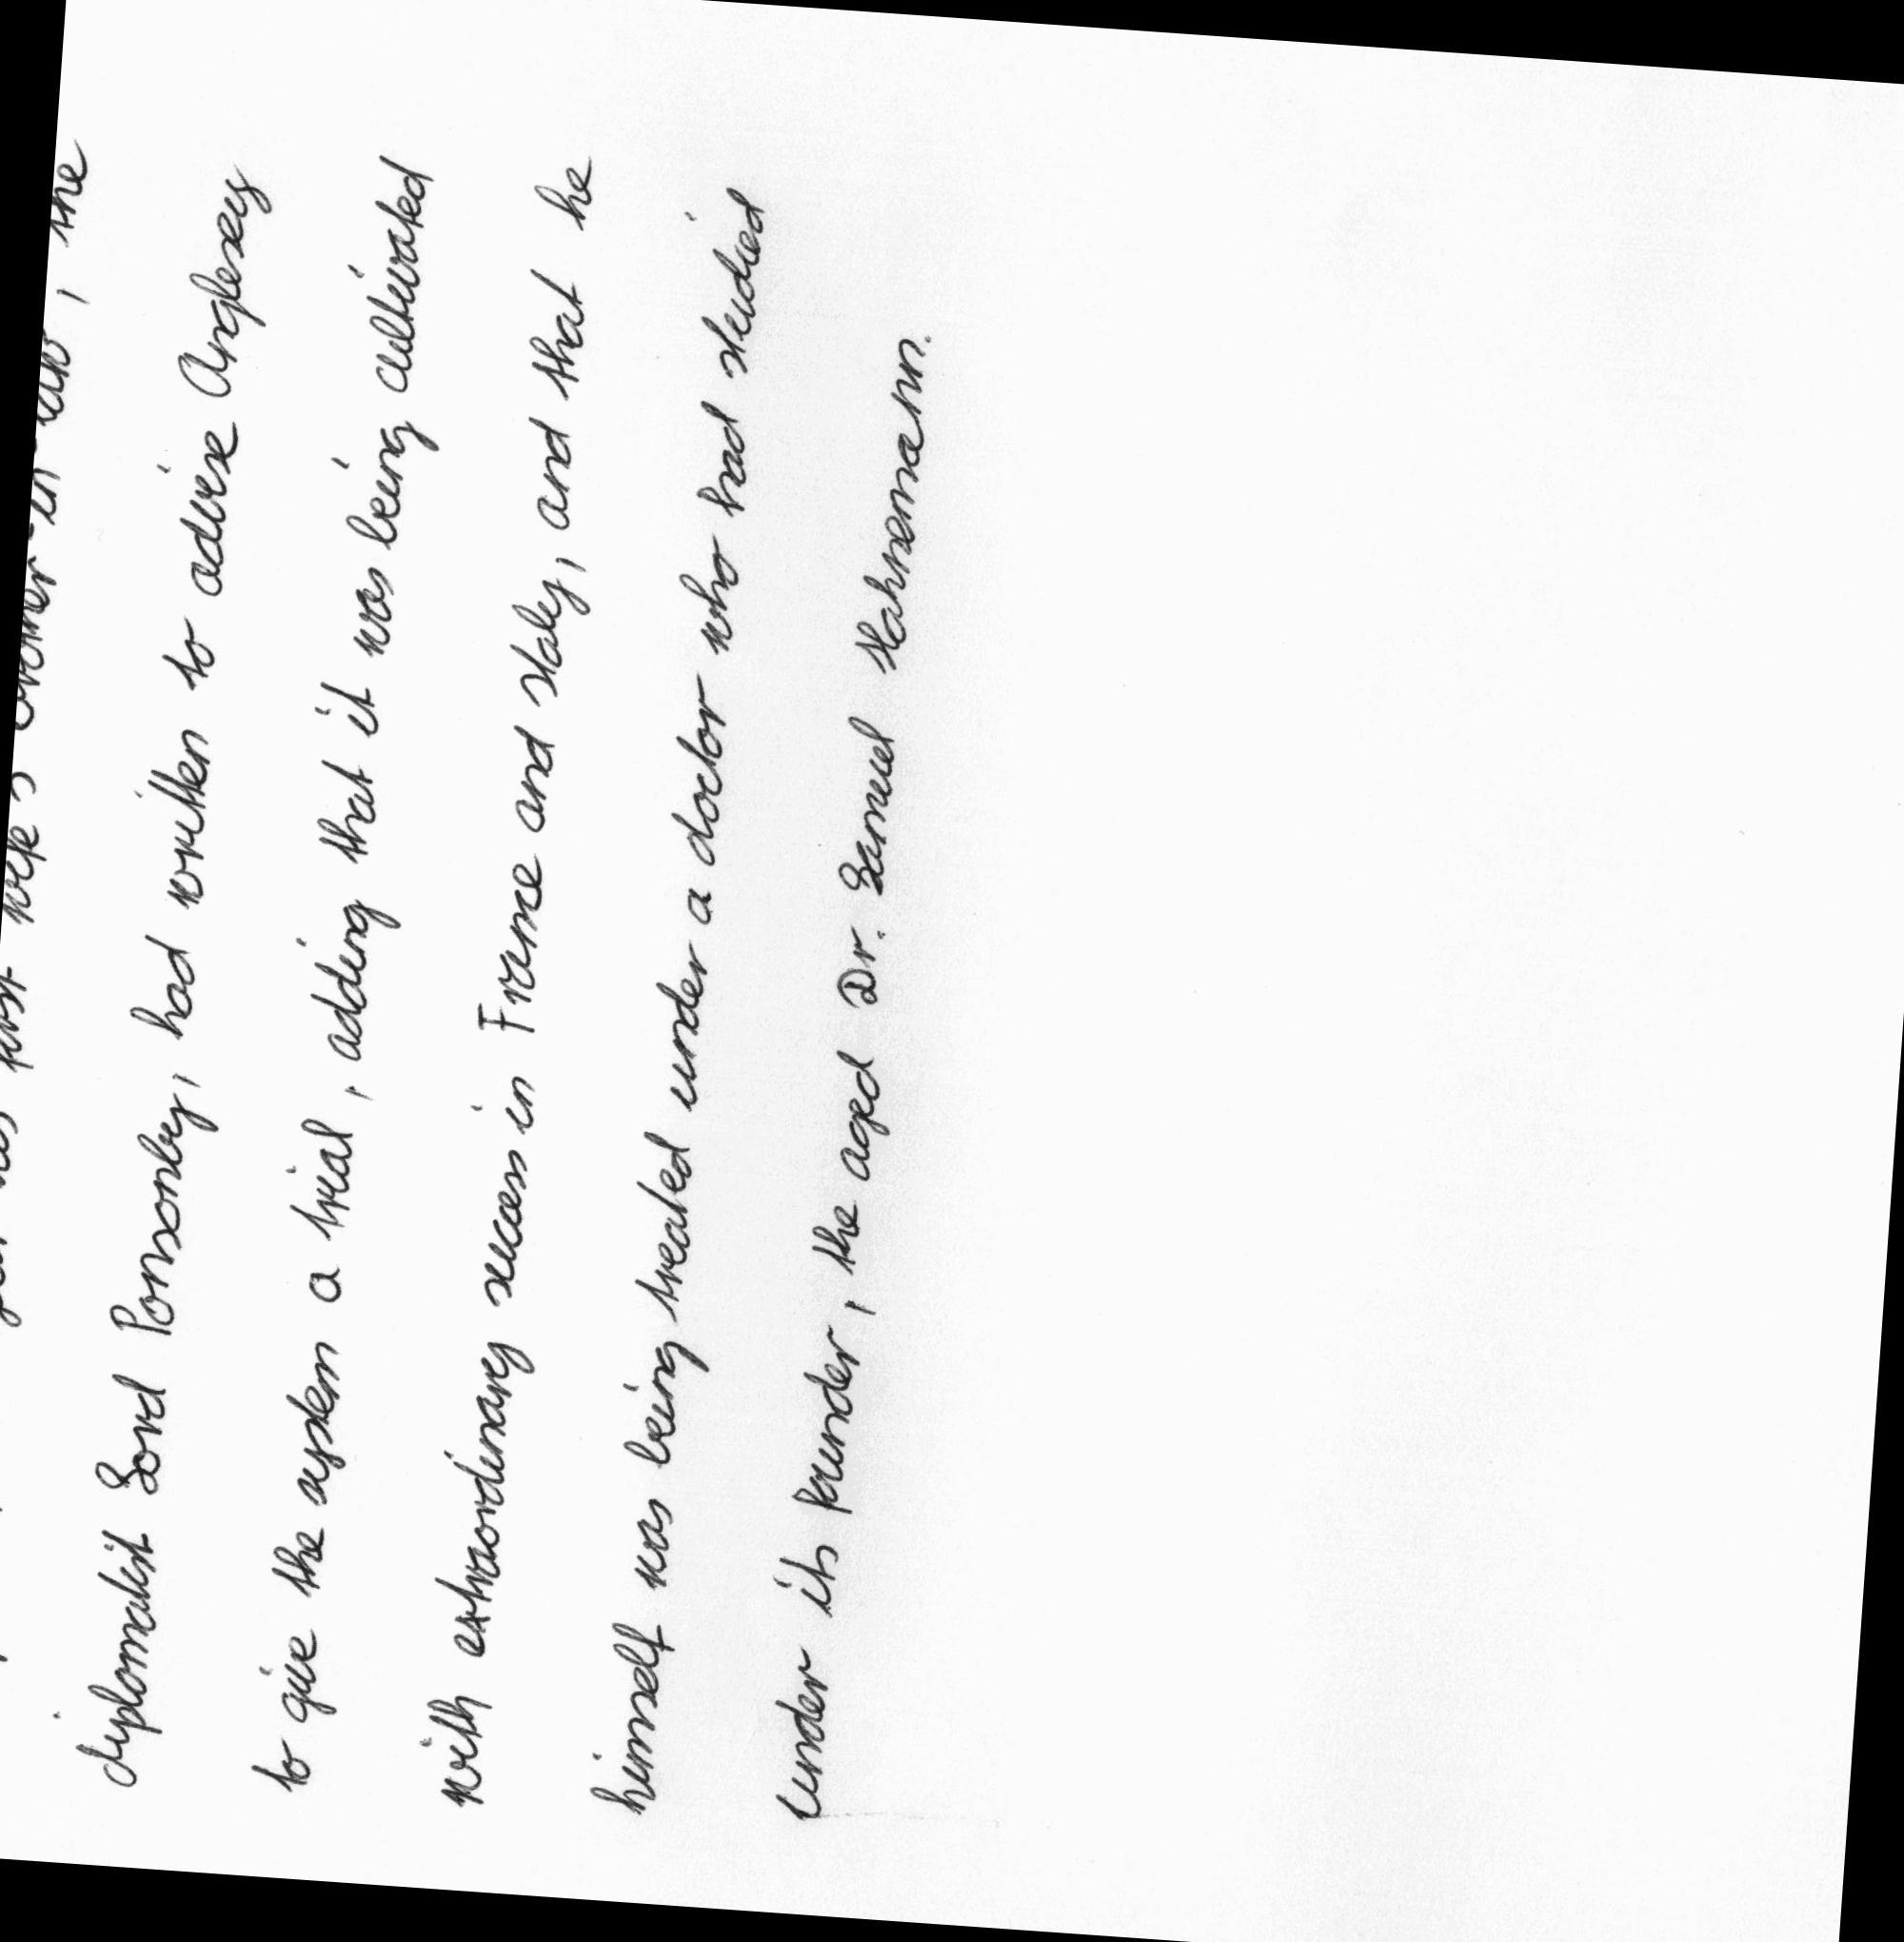 first wife's brother-in-law, the
diplomatist Lord Ponsonby, had written to advise Anglesey
to give the system a trial, adding that it was being cultivated
with extraordinary success in France and Italy, and that he
himself was being treated under a doctor who had studied
under its founder, the aged Dr. Samuel Hahnemann.